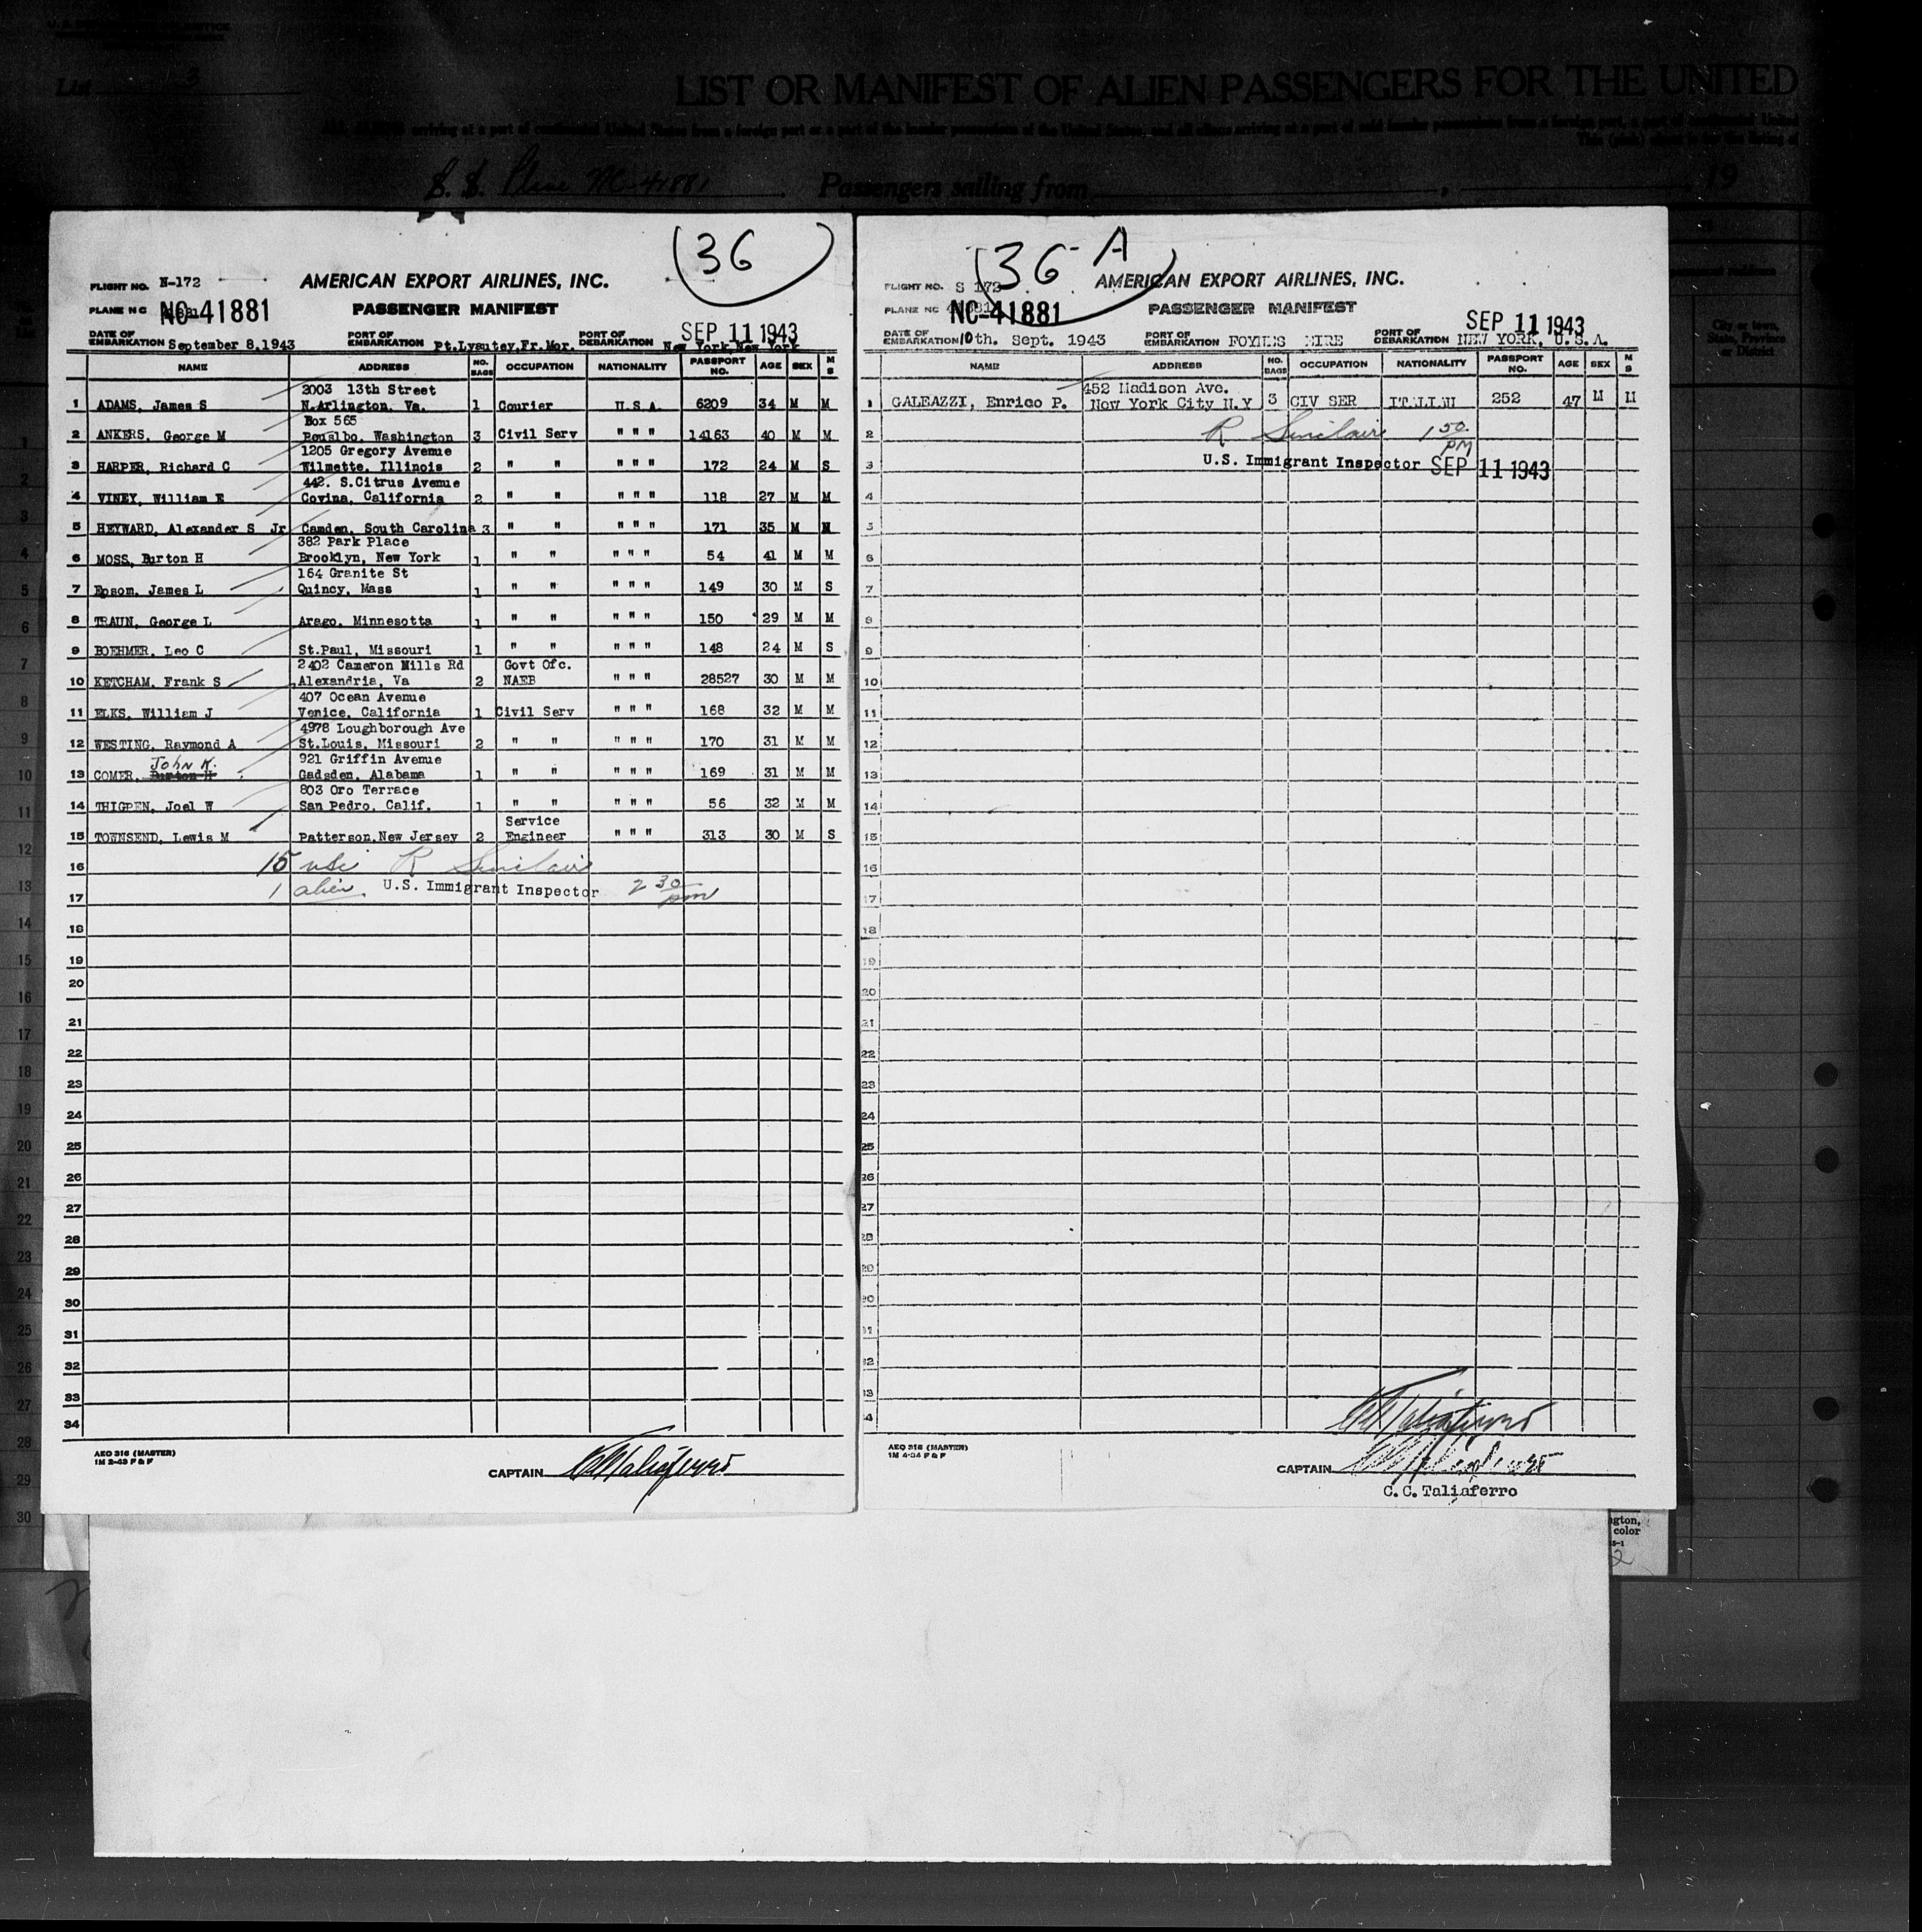 List 3
LIST OR MANIFEST OF ALIEN PASSENGERS FOR THE UNITED
arriving at a port of continental United States from a foreign port or a port of the insular possessions of the United States, and all aliens arriving at a port of said insular possessions from a foreign port, a port of continental United
S. S. Plane NC 41881 Passengers sailing from , 19
(36)
FLIGHT NO. N-172 AMERICAN EXPORT AIRLINES, INC.
PLANE NC NC-41881 PASSENGER MANIFEST
SEP 11 1943
DATE OF EMBARKATION September 8,1943 PORT OF EMBARKATION Pt.Lyautey,Fr.Mor. PORT OF DEBARKATION New York,New York
NAME ADDRESS NO. BAGS OCCUPATION NATIONALITY PASSPORT NO. AGE SEX M S
2003 13th Street
1 ADAMS, James S N.Arlington, Va. 1 Courier U.S.A. 6209 34 M M
Box 565
2 ANKERS, George M Poualbo, Washington 3 Civil Serv " " " 14163 40 M M
1205 Gregory Avenue
3 HARPER, Richard C Wilmette, Illinois 2 " " " " " 172 24 M S
442. S.Citrus Avenue
4 VINEY, William E Covina, California 2 " " " " " 118 27 M M
5 HEYWARD, Alexander S Jr Camden, South Carolina 3 " " " " " 171 35 M M
382 Park Place
6 MOSS, Burton H Brooklyn, New York 1 " " " " " 54 41 M M
164 Granite St
7 Epsom, James L Quincy, Mass 1 " " " " " 149 30 M S
8 TRAUN, George L Arago, Minnesotta 1 " " " " " 150 29 M M
9 BOEHMER, Leo C St.Paul, Missouri 1 " " " " " 148 24 M S
2402 Cameron Mills Rd Govt Ofc.
10 KETCHAM, Frank S Alexandria, Va 2 NAEB " " " 28527 30 M M
407 Ocean Avenue
11 ELKS, William J Venice, California 1 Civil Serv " " " 168 32 M M
4978 Loughborough Ave
12 WESTING, Raymond A St.Louis, Missouri 2 " " " " " 170 31 M M
John K. 921 Griffin Avenue
13 COMER, Burton H Gadsden, Alabama 1 " " " " " 169 31 M M
803 Oro Terrace
14 THIGPEN, Joel W San Pedro, Calif. 1 " " " " " 56 32 M M
Service
15 TOWNSEND, Lewis M Patterson,New Jersey 2 Engineer " " " 313 30 M S
16 15 usc R Sinclair
17 1 alien. U.S. Immigrant Inspector 2 30 pm
18
19
20
21
22
23
24
25
26
27
28
29
30
31
32
33
34
AEO 316 (MASTER)
1M 2-43 P & F
CAPTAIN CC Taliaferro
(36-A)
FLIGHT NO. S 172 AMERICAN EXPORT AIRLINES, INC.
PLANE NC NC-41881 PASSENGER MANIFEST
SEP 11 1943
DATE OF EMBARKATION 10th. Sept. 1943 PORT OF EMBARKATION FOYNES EIRE PORT OF DEBARKATION NEW YORK, U.S.A.
NAME ADDRESS NO. BAGS OCCUPATION NATIONALITY PASSPORT NO. AGE SEX M S
452 Madison Ave.
1 GALEAZZI, Enrico P. New York City N.Y 3 CIV SER ITALIAN 252 47 M M
2 R Sinclair 1 50 PM
3 U.S. Immigrant Inspector SEP 11 1943
4
5
6
7
8
9
10
11
12
13
14
15
16
17
18
19
20
21
22
23
24
25
26
27
28
29
30
31
32
33
34
CC Taliaferro
AEO 316 (MASTER)
1M 4-34 P & F
CAPTAIN CC Taliaferro
C. C. Taliaferro